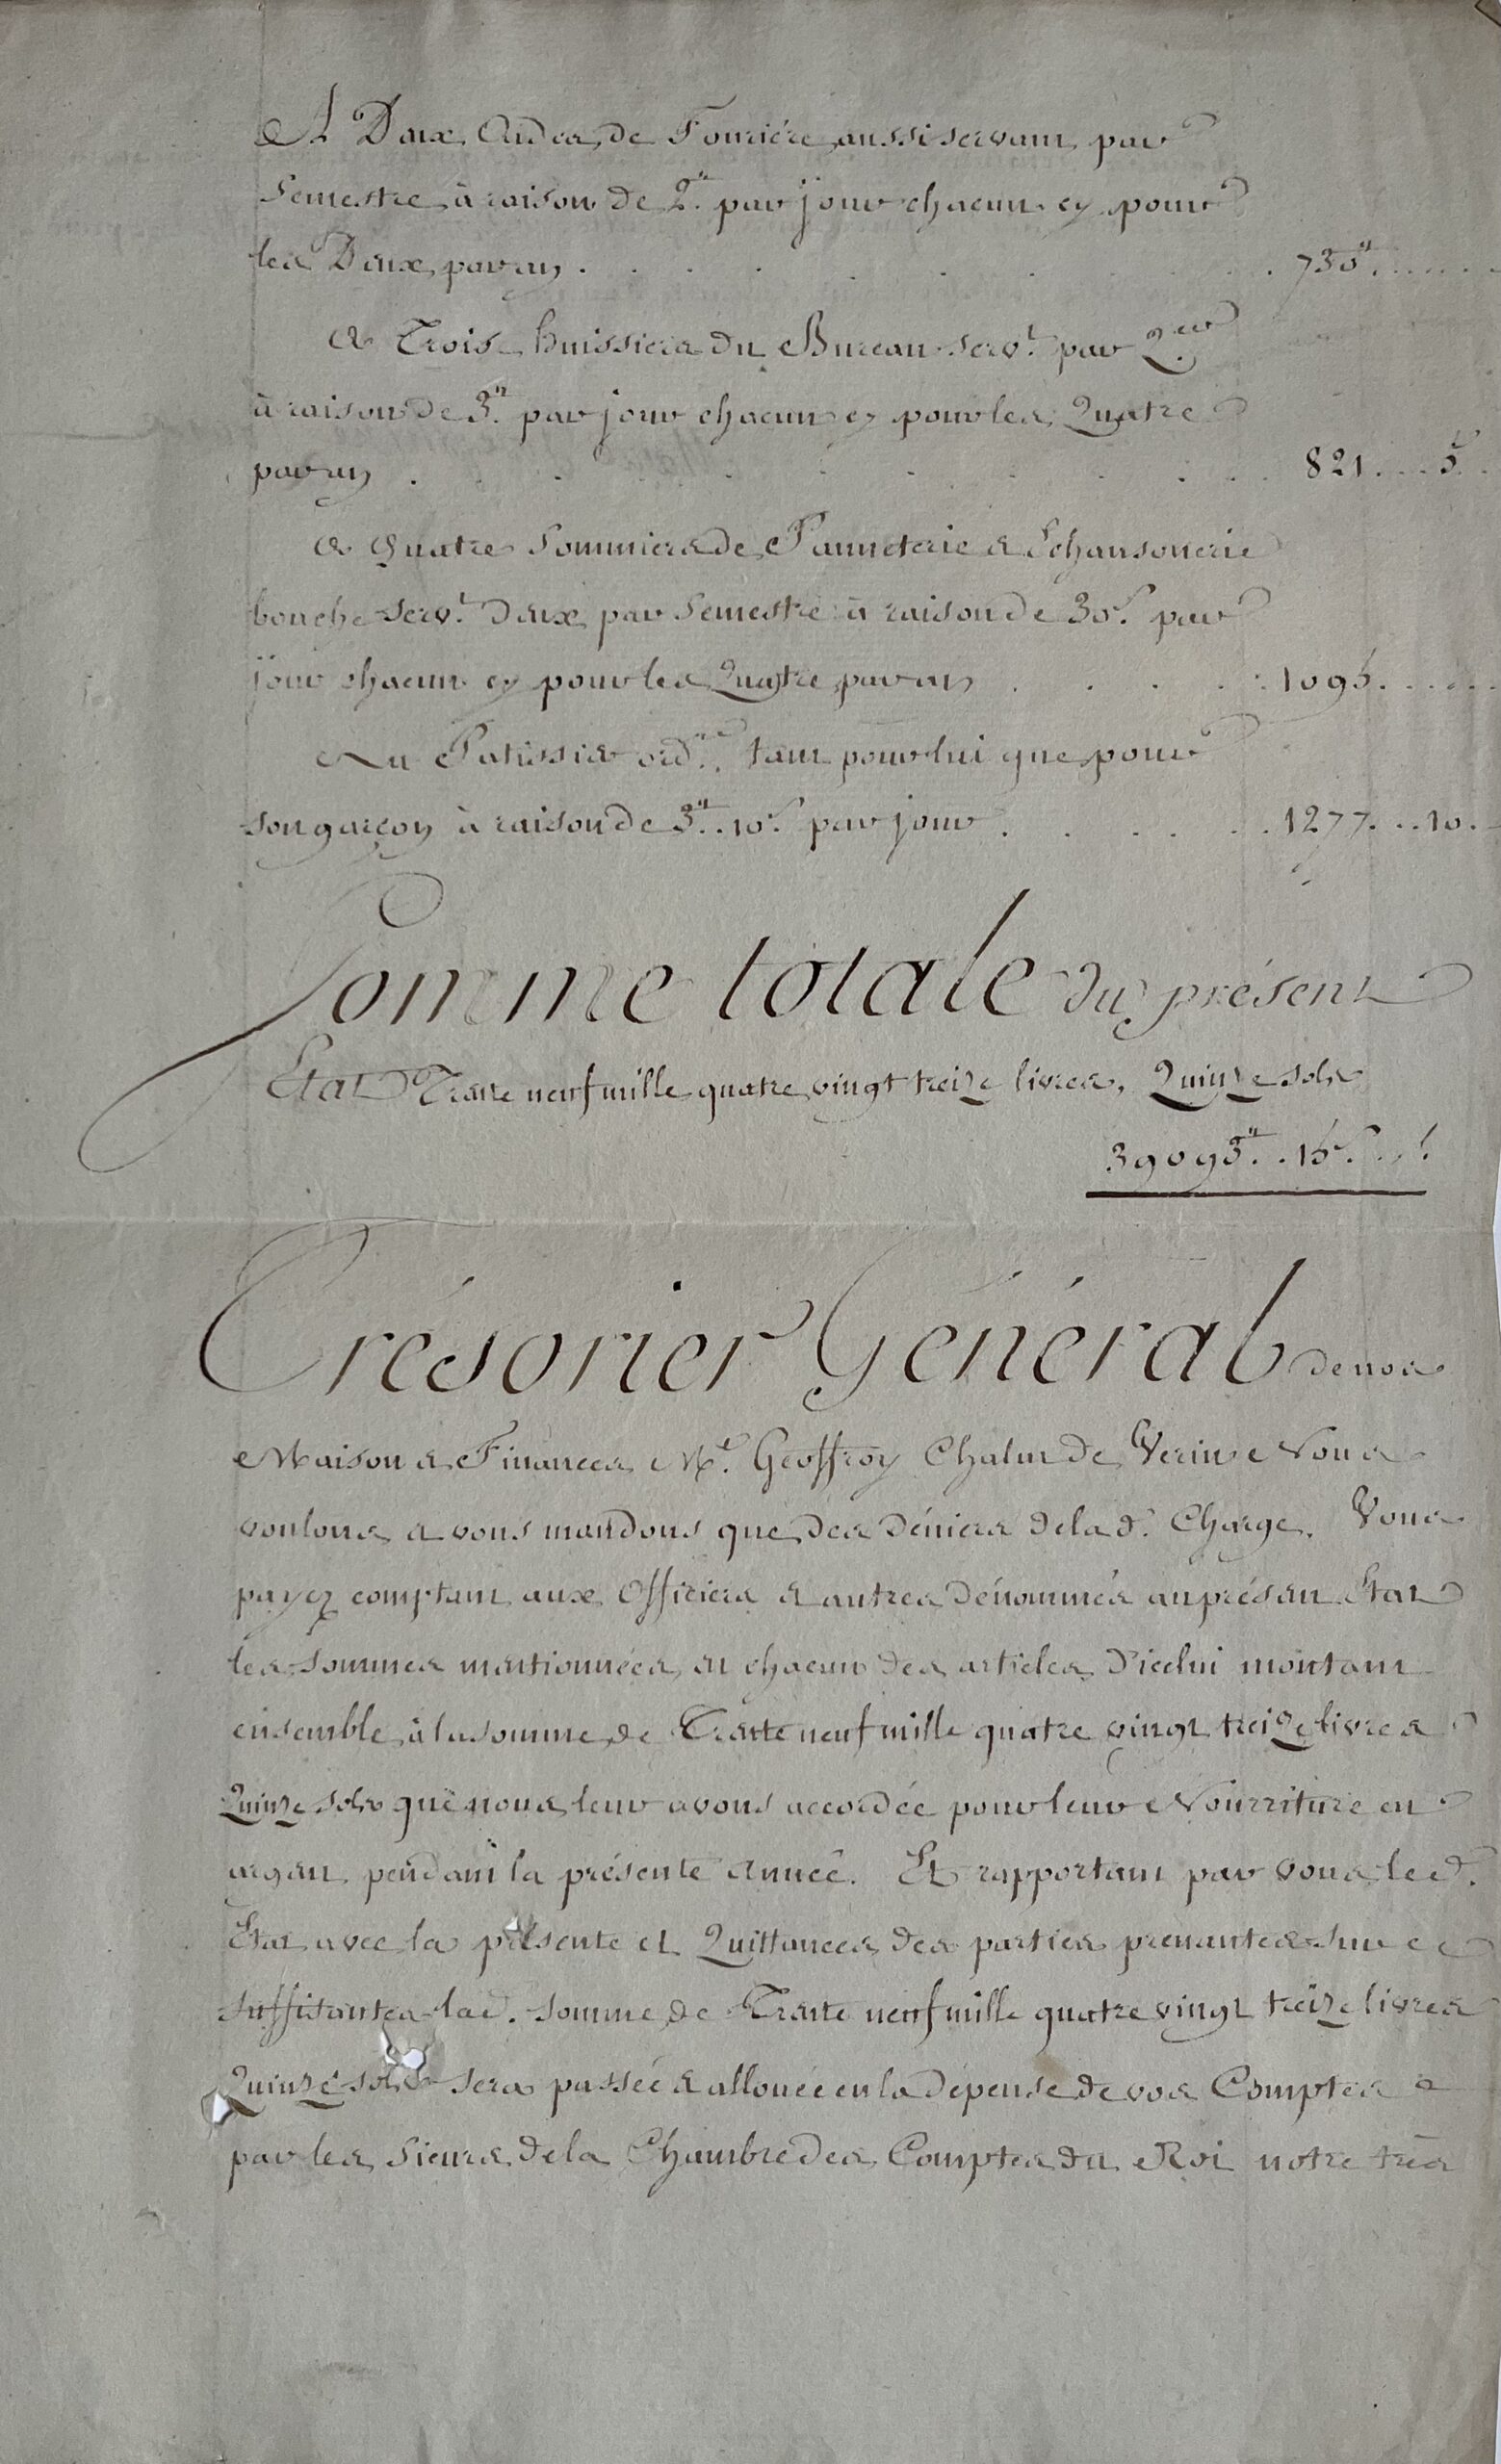 A Deux Aides de Fourière aussi servant par
Semestre à raison de 2ᵗᵗ. par jour chacun cy pour
les Deux par an . . . . . . . . . . 730ᵗᵗ. . . . . .
A Trois huissiers du Bureau servᵗ. par 2.ᵉʳ
à raison de 3ᵗᵗ. par jour chacun cy pour les Quatre
par an . . . . . . . . . . 821. . . 5ˢ.
A Quatre Sommiers de Panneterie & Echansonerie
bouche servᵗ. deux par Semestre à raison de 30ˢ. par
jour chacun cy pour les Quatre par an . . . . . 1095. . . . . .
Au Patissier ordʳᵉ. tant pour lui que pour
son garçon à raison de 3ᵗᵗ. . 10ˢ. par jour . . . . . . 1277. . . 10.
Somme totale du présent
Etat Trente neuf mille quatre vingt treize livres, Quinze sols
39093ᵗᵗ. . 15ˢ. . .
Trésorier Général de nos
Maison & Finances Mᵉ. Geoffroy Chalut de Verin Nous
voulons & vous mandons que des déniers de la dᵉ. Charge, Vous
payez comptant aux Officiers & autres dénommés au présent Etat
les sommes mentionnées en chacun des articles d'icelui montant
ensemble à la somme de Trente neuf mille quatre vingt treize livres
Quinze sols que nous leur avons accordée pour leur Nourriture en
argent pendant la présente année. Et rapportant par vous le d.
Etat avec la présente et Quittances des parties prenantes sur ce
suffisantes lad. somme de Trente neuf mille quatre vingt treize livres
Quinze sols sera passée & allouée en la dépense de vos Comptes
par les Sieurs de la Chambre des Comptes du Roi notre très